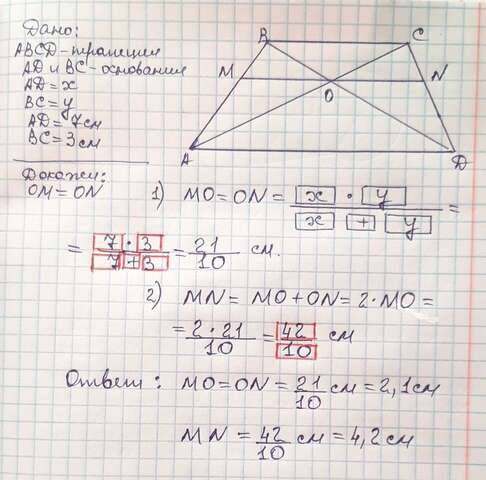 Дано:
ABCD - трапеция
AD и BC - основания
AD = x
BC = y
AD = 7 см
BC = 3 см
Докажи:
OM = ON
B C
M N
O
A D
1) MO = ON = x · y / x + y =
= 7 · 3 / 7 + 3 = 21 / 10 см.
2) MN = MO + ON = 2 · MO =
= 2 · 21 / 10 = 42 / 10 см
Ответ: MO = ON = 21 / 10 см = 2,1 см
MN = 42 / 10 см = 4,2 см